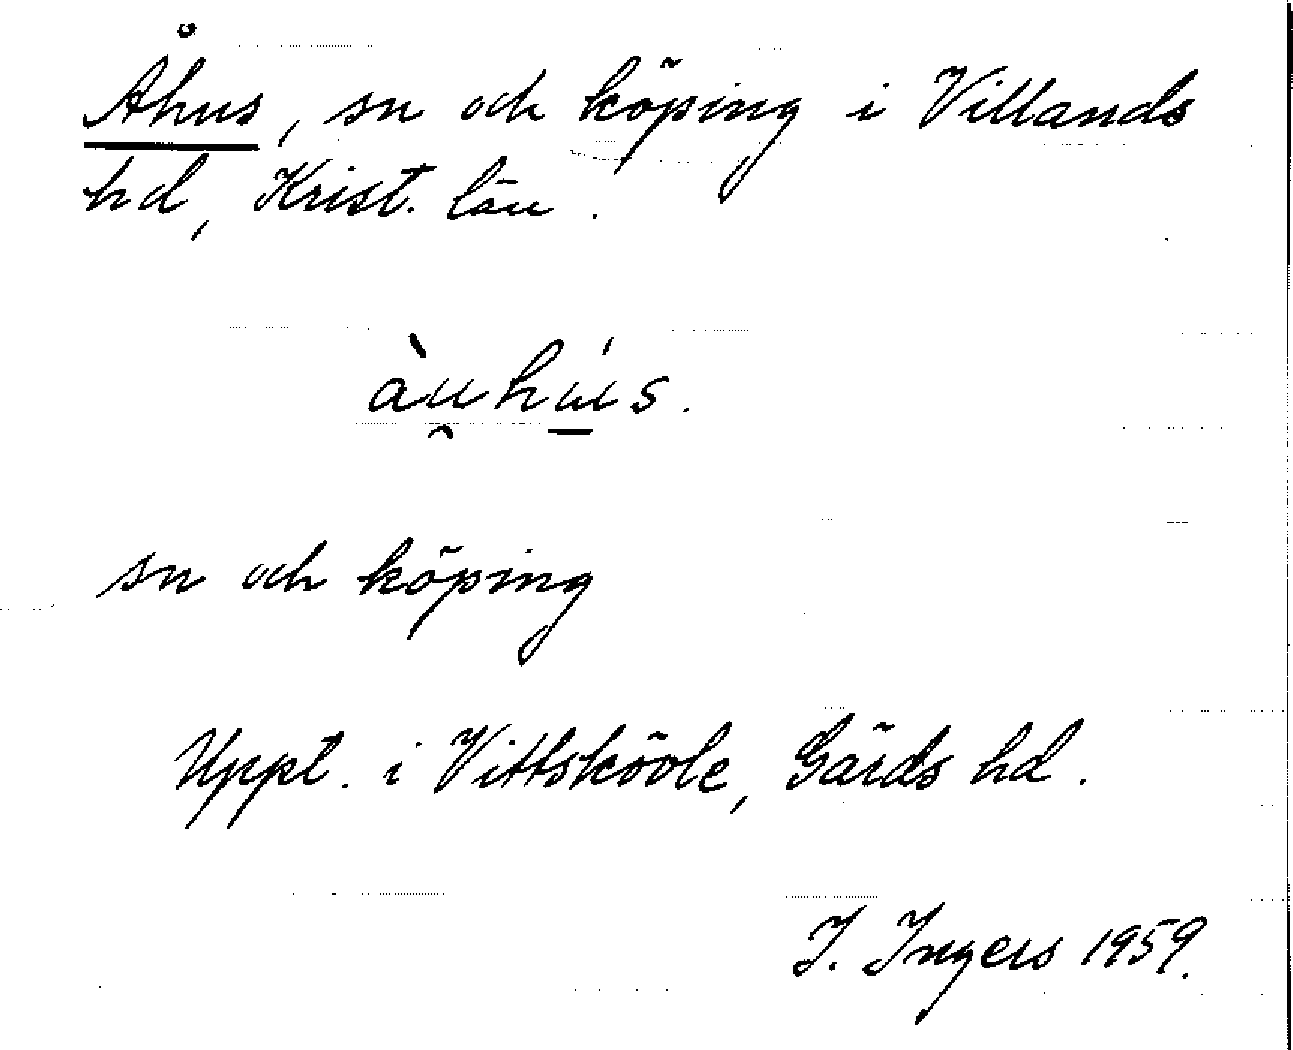 Åhus, sn och köping i Villands
hd, Krist. län.
àu̯húi̠s.
sn och köping
Uppt. i Vittskövle, Gärds hd.
I. Ingers 1959.